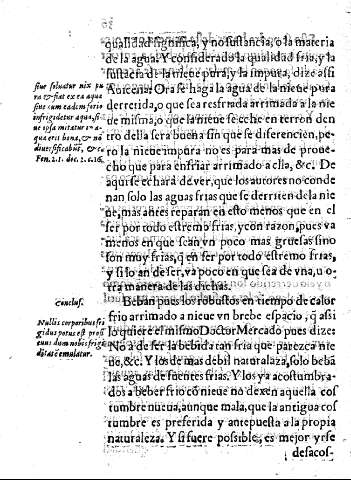 qualidad significa, y no sustancia, o la materia
de la agua. Y considerado la qualidad fria, y la
sustãcia de la nieue pura, y la impura, dize assi
Auicena: Ora se haga la agua de la nieue pura
derretida, o que sea resfriada arrimada a la nie
ue misma, o que la nieue se eche en terron den
tro della sera buena sin que se diferencien, pe-
ro la nieue impura no es para mas de proue-
cho que para enfriar arrimado a ella, &c. De
aqui se echará de ver, que los autores no conde
nan solo las aguas frias que se derriten de la nie
ue, mas antes reparan en esto menos que en el
ser por todo estremo frias, y con razon, pues va
menos en que sean vn poco mas gruesas, sino
son muy frias, q̃ en ser por todo estremo frias,
y si lo an de ser, va poco en que sea de vna, u o-
tra manera de las dichas.
Beban pues los robustos en tiempo de calor
frio arrimado a nieue vn brebe espacio, q̃ assi
lo quiere el mismo Doctor Mercado pues dize:
No á de ser la bebida tan fria que parezca nie
ue, &c. Y los de mas debil naturalaza, solo bebã
las aguas de fuentes frias. Y los ya acostumbra-
dos a beber frio cõ nieue no dexen aquella cos
tumbre nueua, aunque mala, que la antigua cos
tumbre es preferida y antepuesta a la propia
naturaleza. Y si fuere possible, es mejor yrse
desacos-
siue soluatur nix pu
ra & fiat ex ea aqua
siue cum eadim forio
infrigidetur aqua, si
ue ipsa mitatur in a-
qua erit bona, & nõ
diuersificabũt, & c.
Fen. 2. 1. doc. 2. c. 16.
Conclus.
Nullis corporibus fri
gidus potus est prof
cuus dum nobis frigi
ditatẽ emulatur.